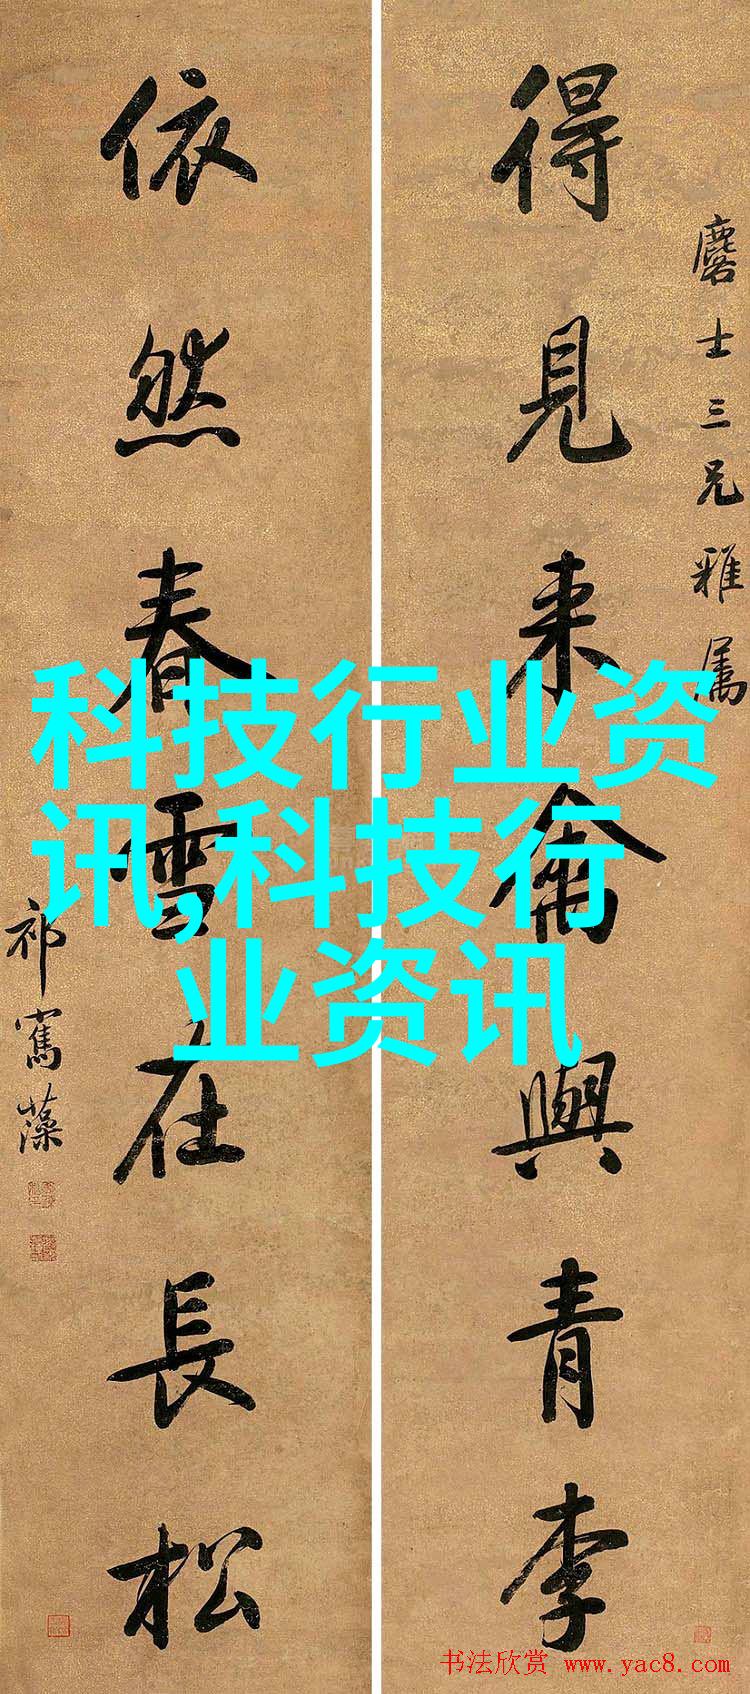 麐士三兄雅属
得見来禽與青李
依然春雪在長松
祁寯藻
科技行业资
讯,科技行
业资讯
书法欣赏 www.yac8.com